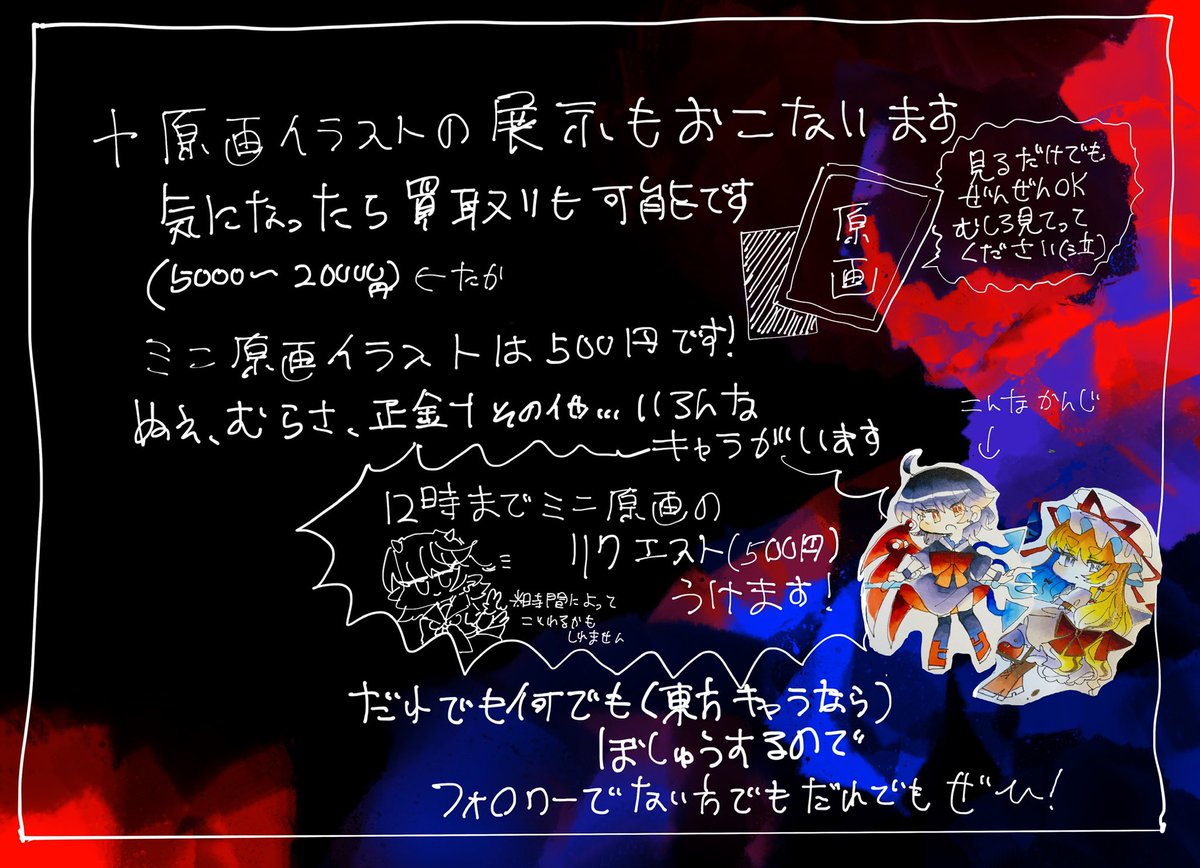 +原画イラストの展示もおこないます
気になったら買取りも可能です
(5000〜20000円)←たか
見るだけでも
ぜんぜんOK
むしろ見てって
ください(泣)
原画
ミニ原画イラストは500円です!
ぬえ、むらさ、正金+その他…いろんな
キャラがいます
こんなかんじ
↓
12時までミニ原画の
リクエスト(500円)
うけます!
※時間によって
ことわるかも
しれません
だれでも何でも(東方キャラなら)
ぼしゅうするので
フォロワーでない方でもだれでもぜひ!